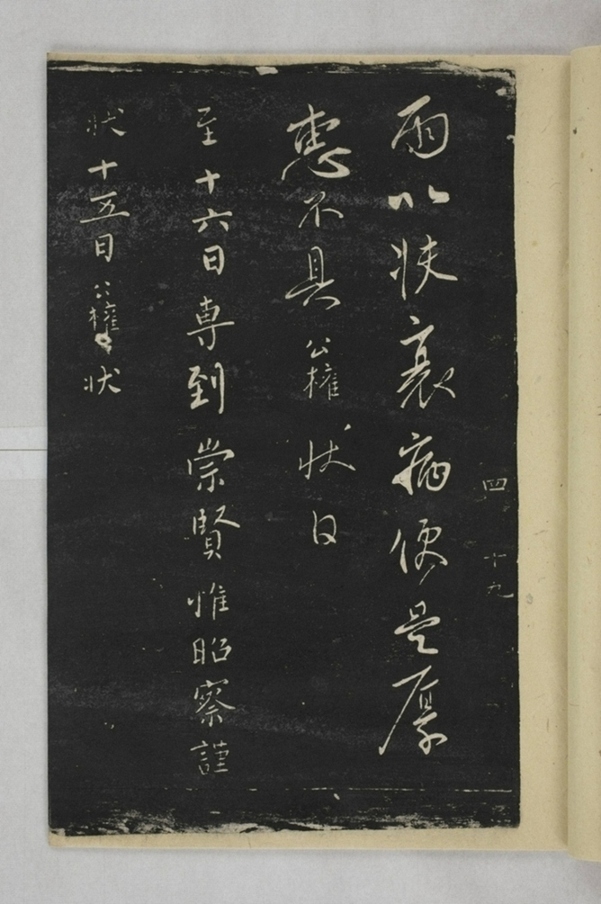 四 十九
雨以状衰病便是厚
惠不具公權状白
至十六日専到崇賢惟昭察謹
状十五日公權状